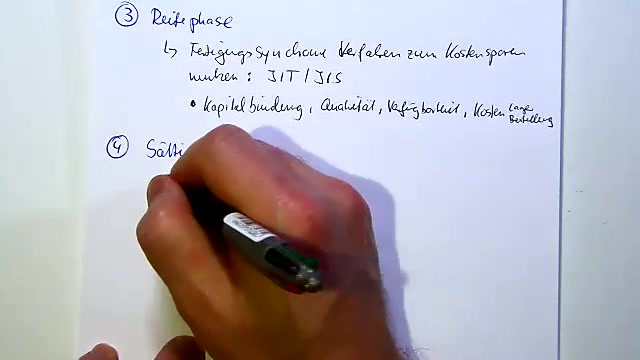 ③ Reifephase
↳ Fertigungssynchrone Verfahren zum Kostensparen
nutzen: JIT/JIS
• Kapitalbindung, Qualität, Verfügbarkeit, Kosten Lager
Bestellung
④ Sätti